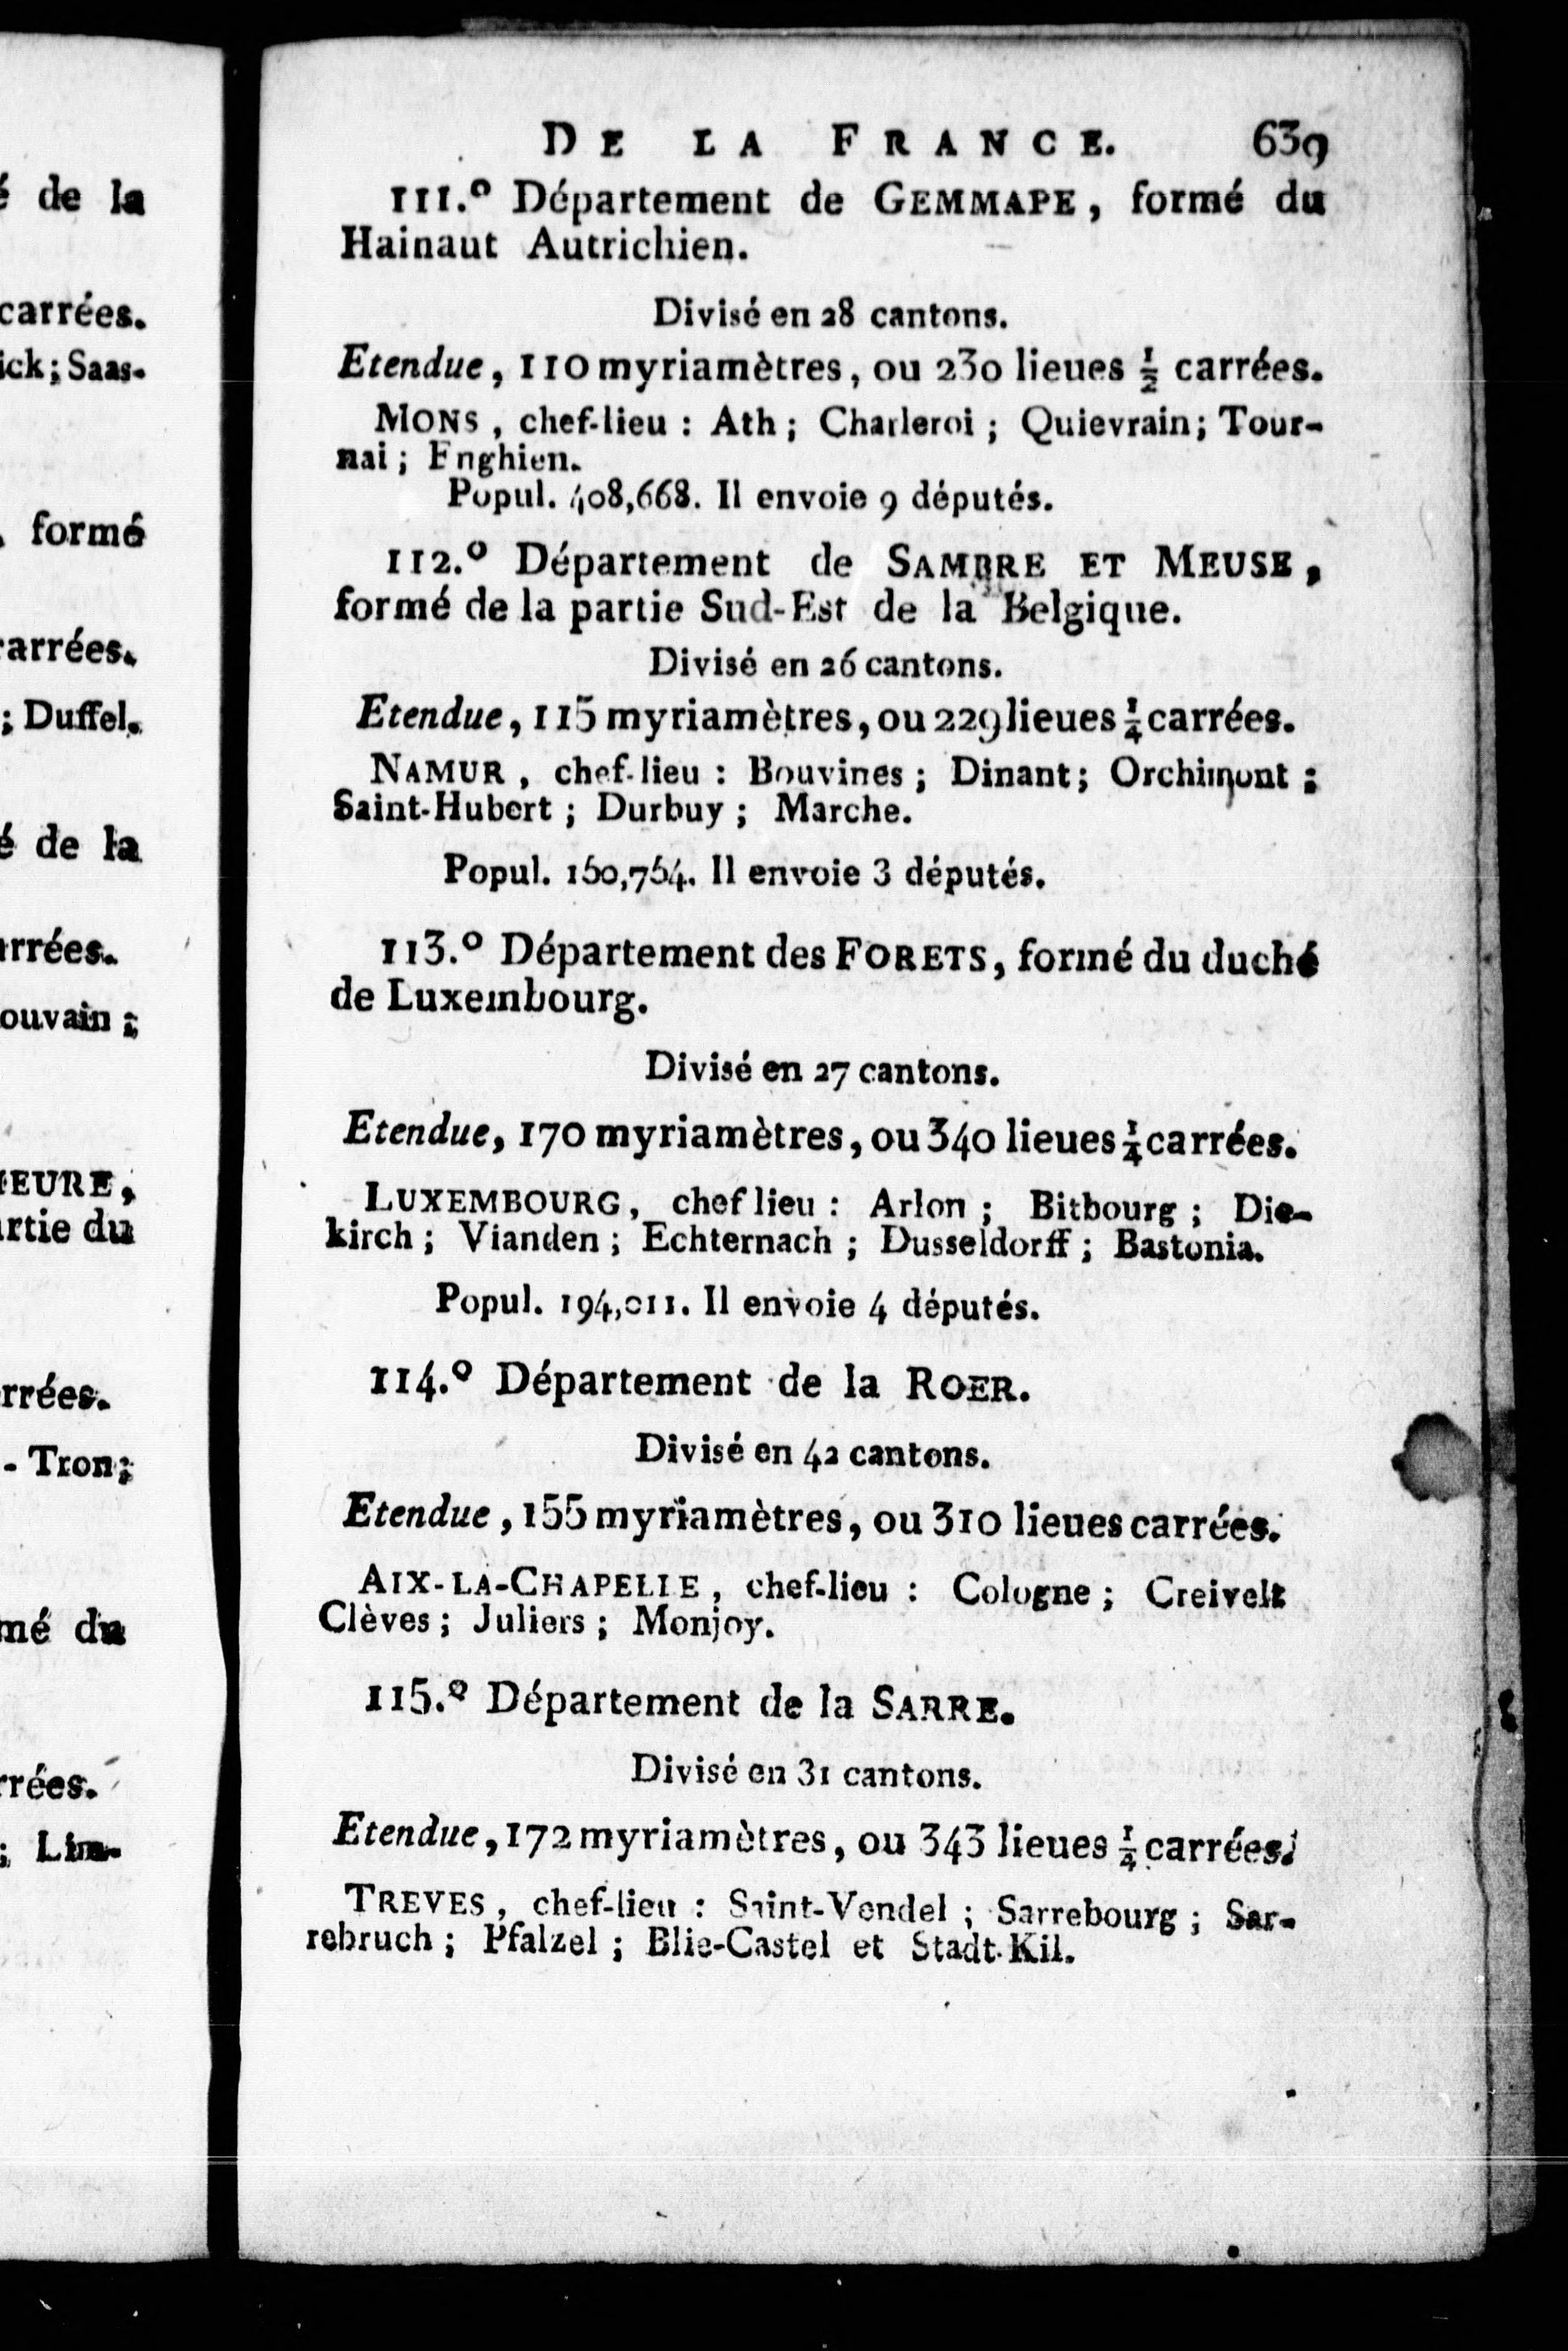 é de la
carrées.
ick; Saas-
formé
carrées.
; Duffel.
é de la
rrées.
ouvain;
IEURE,
rtie du
rrées.
- Tron;
mé du
rrées.
; Lim-
DE LA FRANCE. 639
111.º Département de GEMMAPE, formé du
Hainaut Autrichien.
Divisé en 28 cantons.
Etendue, 110 myriamètres, ou 230 lieues ½ carrées.
MONS, chef-lieu : Ath ; Charleroi ; Quievrain ; Tour-
nai ; Enghien.
Popul. 408,668. Il envoie 9 députés.
112.º Département de SAMBRE ET MEUSE,
formé de la partie Sud-Est de la Belgique.
Divisé en 26 cantons.
Etendue, 115 myriamètres, ou 229 lieues ¼ carrées.
NAMUR, chef-lieu : Bouvines ; Dinant ; Orchimont ;
Saint-Hubert ; Durbuy ; Marche.
Popul. 150,754. Il envoie 3 députés.
113.º Département des FORETS, formé du duché
de Luxembourg.
Divisé en 27 cantons.
Etendue, 170 myriamètres, ou 340 lieues ¼ carrées.
LUXEMBOURG, chef lieu : Arlon ; Bitbourg ; Die-
kirch ; Vianden ; Echternach ; Dusseldorff ; Bastonia.
Popul. 194,011. Il envoie 4 députés.
114.º Département de la ROER.
Divisé en 42 cantons.
Etendue, 155 myriamètres, ou 310 lieues carrées.
AIX-LA-CHAPELLE, chef-lieu : Cologne ; Creivelt
Clèves ; Juliers ; Monjoy.
115.º Département de la SARRE.
Divisé en 31 cantons.
Etendue, 172 myriamètres, ou 343 lieues ¼ carrées.
TREVES, chef-lieu : Saint-Vendel ; Sarrebourg ; Sar-
rebruch ; Pfalzel ; Blie-Castel et Stadt-Kil.